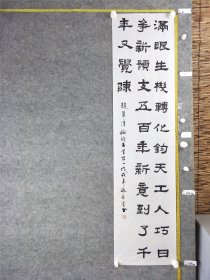 滿眼生機轉化鈞天工人巧日
爭新預支五百年新意到了千
年又覺陳